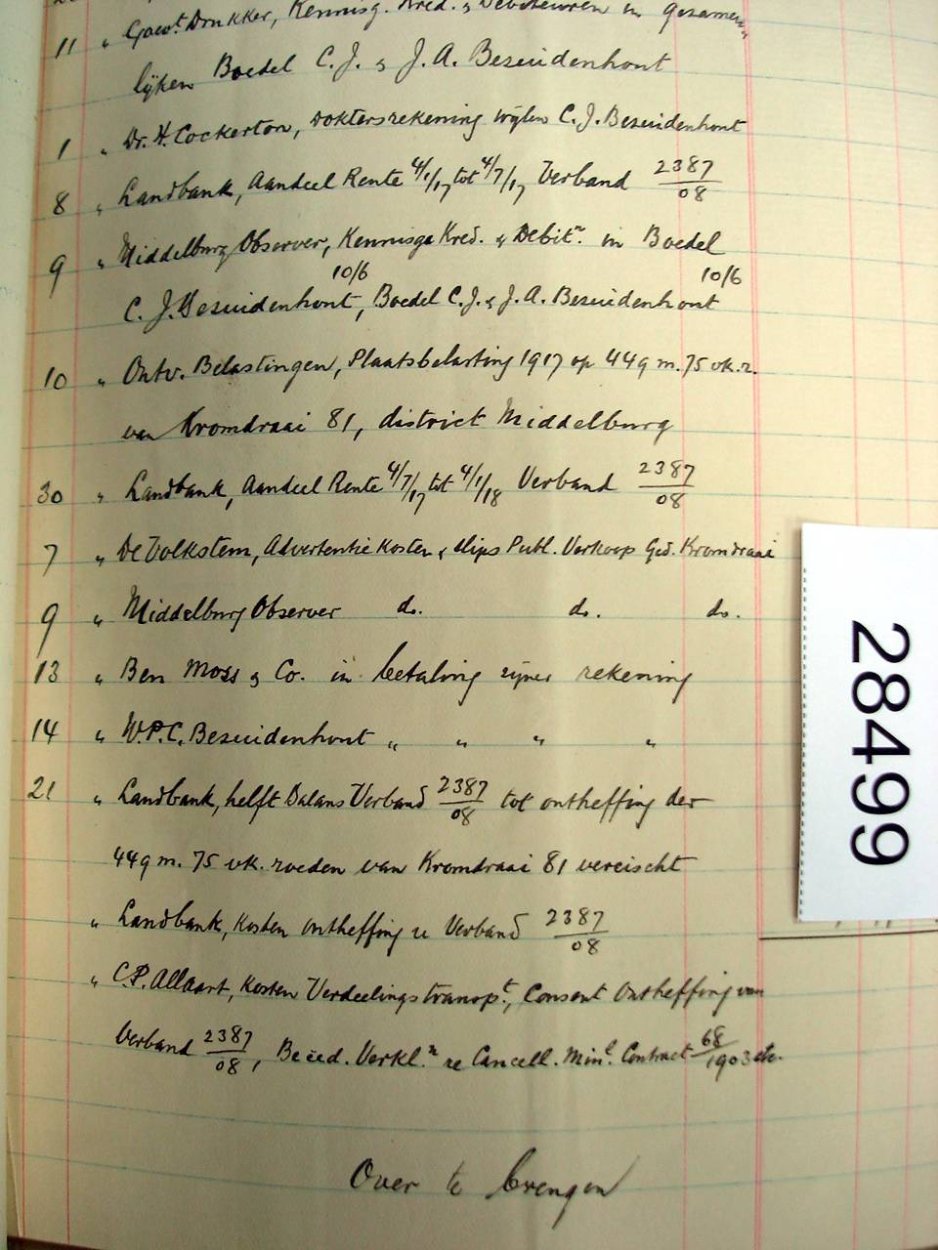 11 " Govt. Drukker, Kennisg. Kred. & Debiteuren in gezamen-
lijken Boedel C. J. & J. A. Bezuidenhout
1 " Dr. H. Cockerton, Doktersrekening wijlen C. J. Bezuidenhout
8 " Landbank, Aandeel Rente 4/1/17 tot 4/7/17 Verband 2387/08
9 " Middelburg Observer, Kennisge Kred. & Debitn. in Boedel
10/6 10/6
C. J. Bezuidenhout, Boedel C. J. & J. A. Bezuidenhout
10 " Ontv. Belastingen, Plaatsbelasting 1917 op 449 m. 75 vk. r.
van Kromdraai 81, district Middelburg
30 " Landbank, Aandeel Rente 4/7/17 tot 4/1/18 Verband 2387/08
7 " De Volkstem, Advertentie Kosten & slips Publ. Verkoop Ged. Kromdraai
9 " Middelburg Observer do. do. do.
13 " Ben Moss & Co. in betaling zijner rekening
14 " W. P. C. Bezuidenhout " " " "
21 " Landbank, helft Balans Verband 2387/08 tot ontheffing der
449 m. 75 vk. roeden van Kromdraai 81 vereischt
" Landbank, Kosten ontheffing u Verband 2387/08
" C. P. Allaart, Kosten Verdeelings transpt., Consent Ontheffing van
Verband 2387/08, Beëed. Verkl.n re Cancell. Minl. Contract 68/1903 etc.
Over te brengen
28499